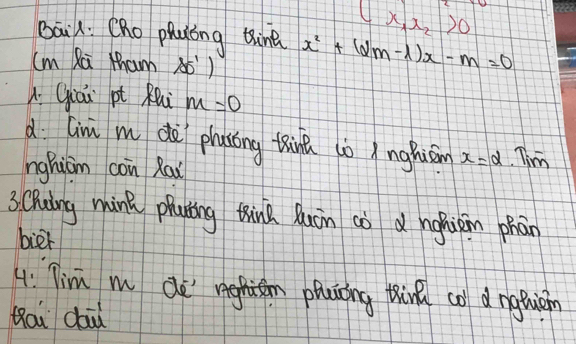 { x₁x₂ > 0
Bài 1: Cho phương trình x² + (2m - 1)x - m = 0
(m là tham số)
1: Giải pt khi m = 0
2: Tìm m để phương trình có 1 nghiệm x = 2. Tìm
nghiệm còn lại
3. Chứng minh phương trình luôn có 2 nghiệm phân
biệt
4: Tìm m để nghiệm phương trình có 2 nghiệm
trái dấu